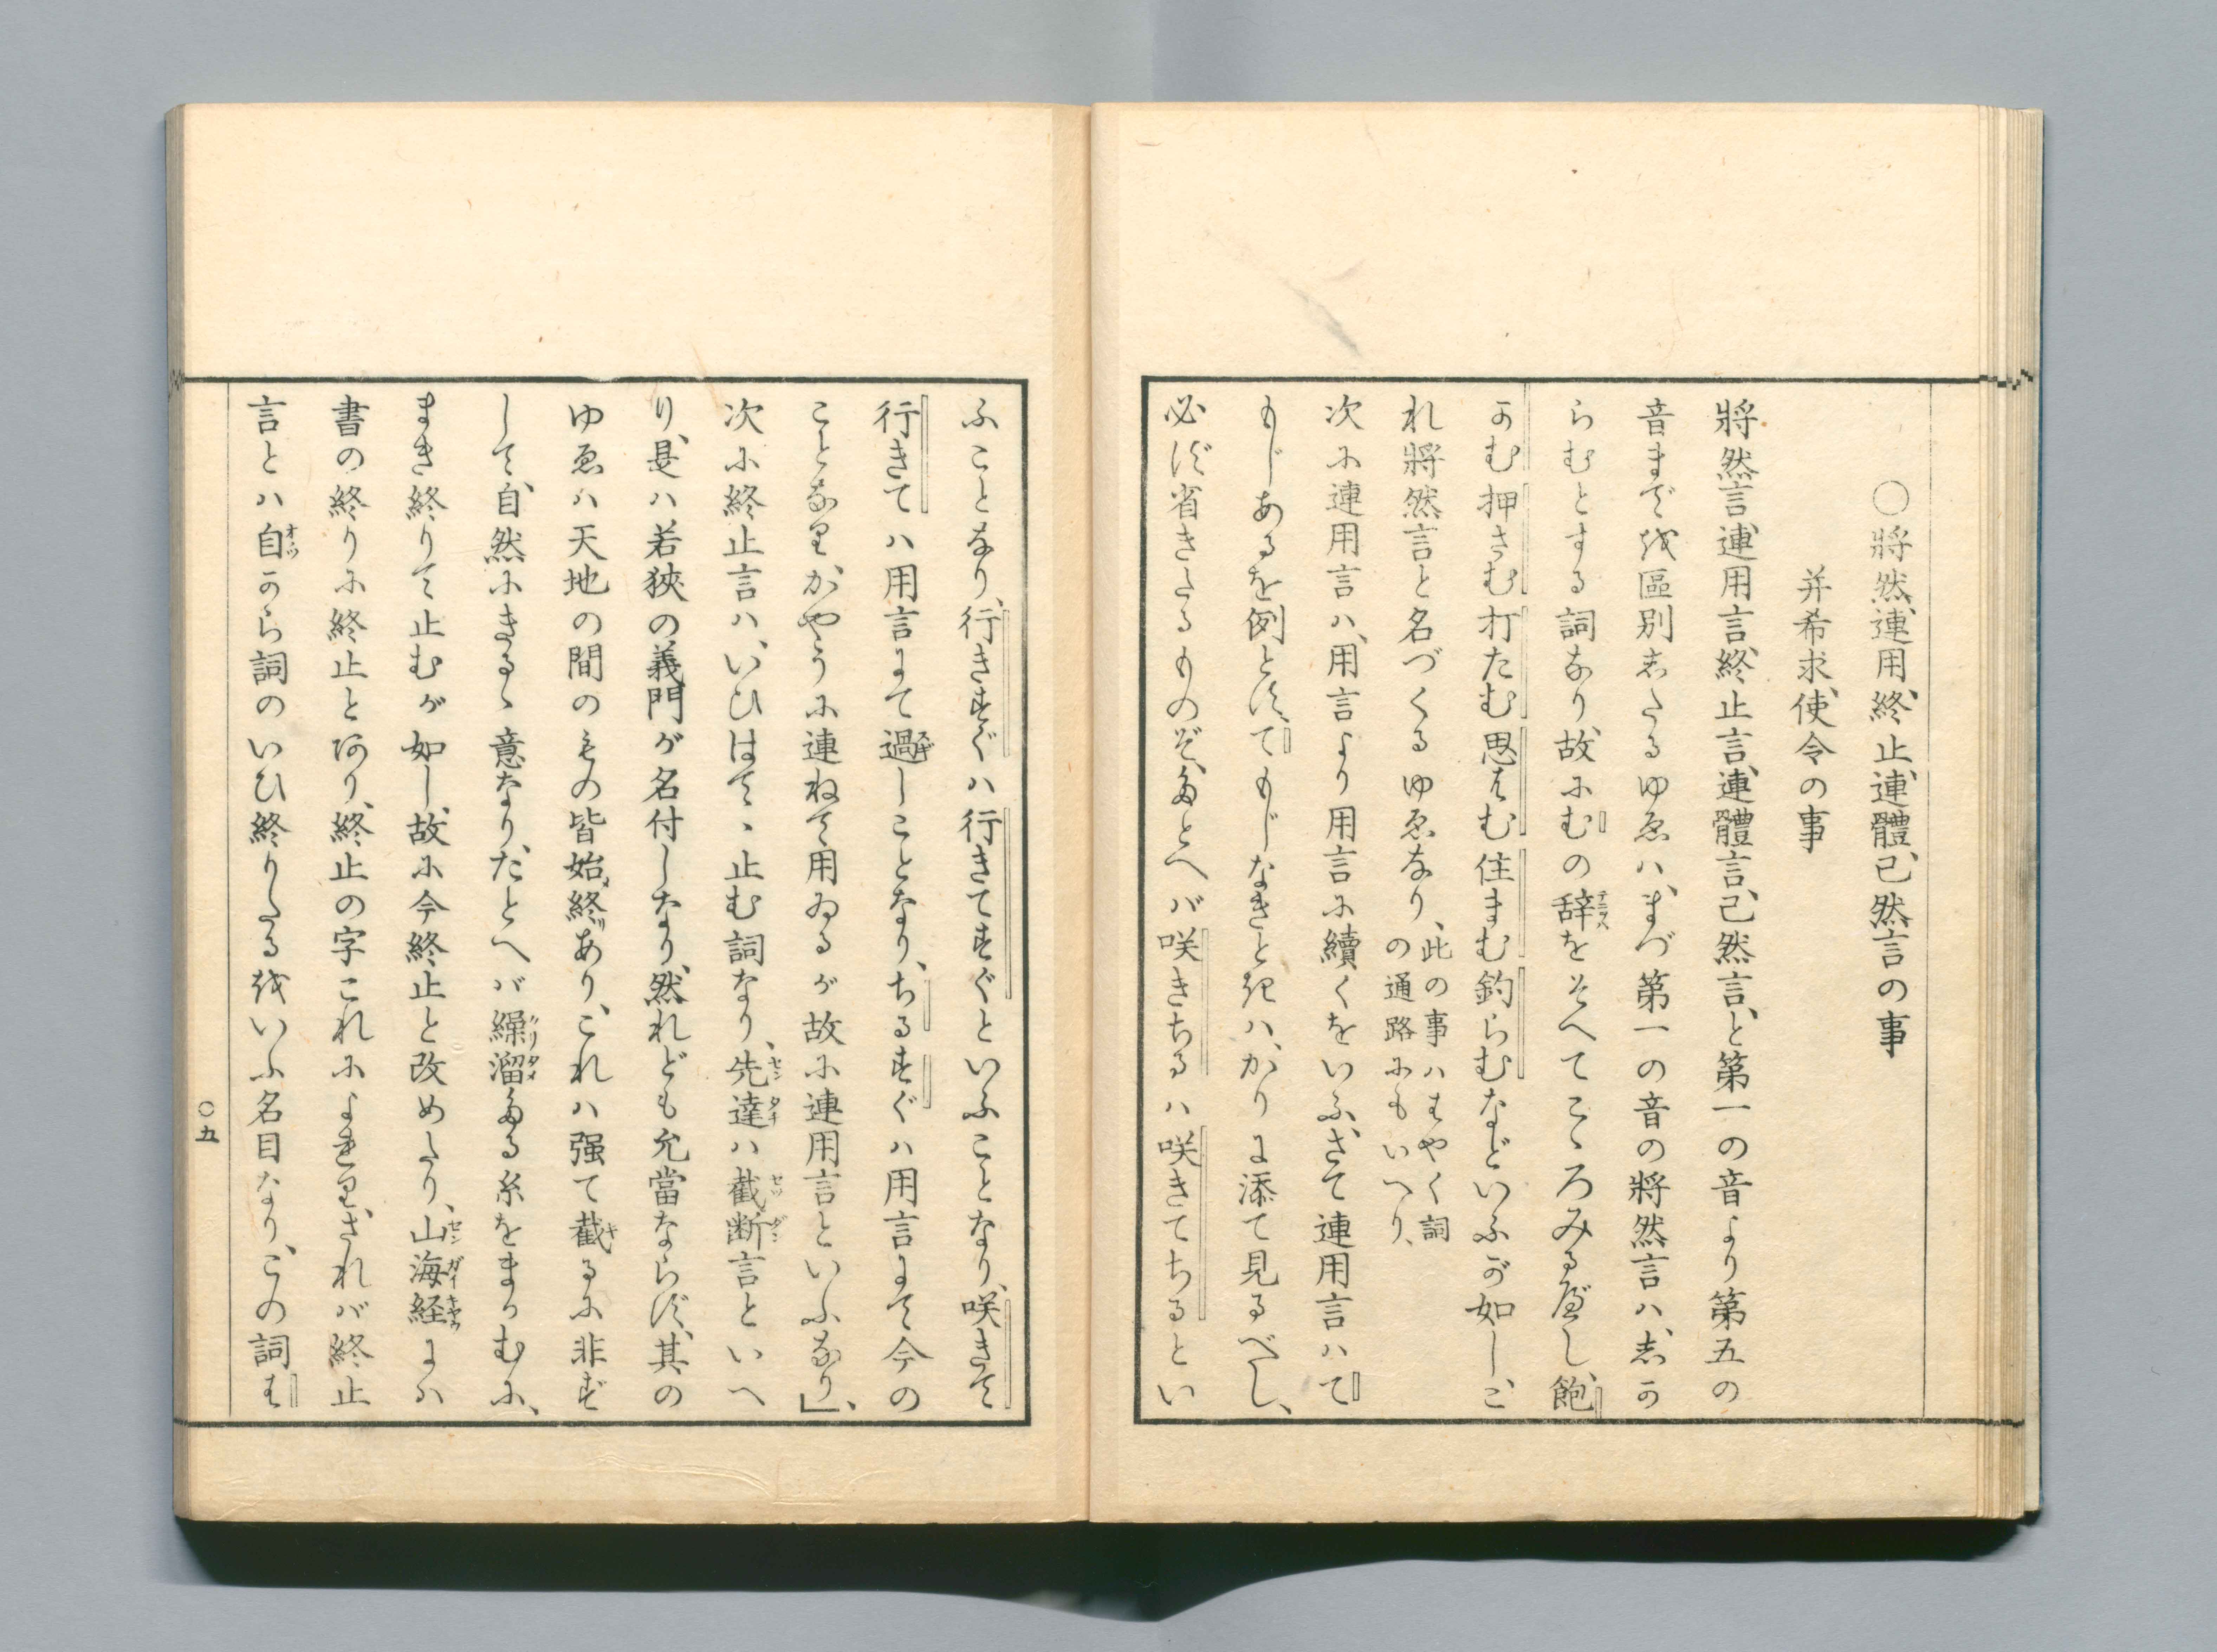 ○將然、連用、終止、連體、已然言の事
并希求、使令の事
將然言、連用言、終止言、連體言、已然言、と第一の音より第五の
音までを區別したるゆゑハ、まづ第一の音の將然言ハ、しか
らむとする詞なり、故にむの辞をそへてこゝろみるべし、飽
かむ押さむ打たむ思はむ住まむ釣らむなどいふが如し、こ
れ將然言と名づくるゆゑなり、此の事ハはやく詞の通路にもいへり、
次に連用言ハ、用言より用言に續くをいふ、さて連用言ハて
もじあるを例とす、てもじなきときハ、かりに添て見るべし、
必ず省きたるものぞ、たとへバ咲きちるハ咲きてちるとい
ふことなり、行きすぐハ行きてすぐといふことなり、咲きて
行きてハ用言にて過しことなり、ちるすぐハ用言にて今の
ことなり、かやうに連ねて用ゐるが故に連用言といふなり」、
次に終止言ハ、いひはてゝ止む詞なり、先達ハ截断言といへ
り、是ハ若狹の義門が名付しなり、然れども允當ならず、其の
ゆゑハ天地の間のもの皆始終あり、これハ强て截るに非ず
して、自然にきるゝ意なり、たとへバ繰溜たる糸をまかむに、
まき終りて止むが如し、故に今終止と改めたり、山海経にハ
書の終りに終止とあり、終止の字これによれり、されバ終止
言とハ自から詞のいひ終りたるをいふ名目なり、この詞は
○五